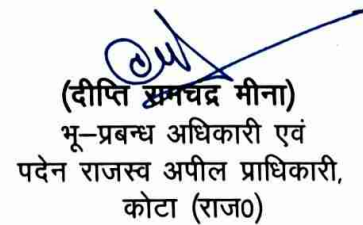 (दीप्ति रामचंद्र मीना)
भू–प्रबन्ध अधिकारी एवं
पदेन राजस्व अपील प्राधिकारी,
कोटा (राज0)